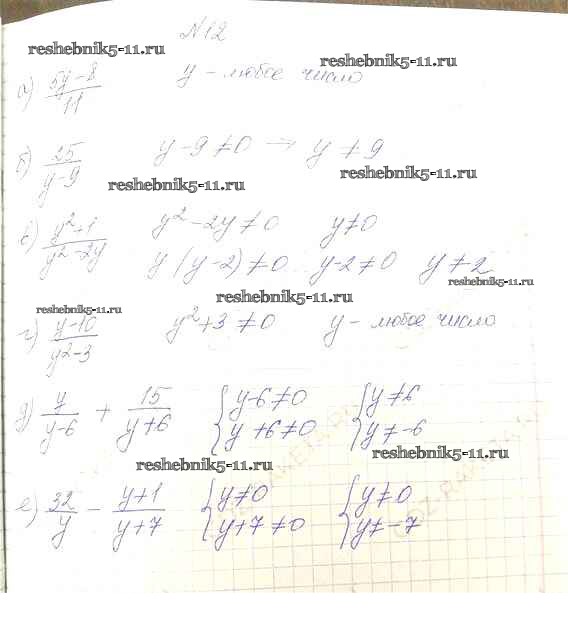 №12
reshebnik5-11.ru
reshebnik5-11.ru
а) (5y-8)/11 y - любое число
б) 25/(y-9) y-9≠0 → y≠9
reshebnik5-11.ru
reshebnik5-11.ru
в) (y²+1)/(y²-2y) y²-2y≠0 y≠0
y(y-2)≠0 y-2≠0 y≠2
reshebnik5-11.ru
reshebnik5-11.ru
reshebnik5-11.ru
г) (y-10)/(y²-3) y²+3≠0 y - любое число
д) y/(y-6) + 15/(y+6) { y-6≠0 { y≠6
y+6≠0 y≠-6
reshebnik5-11.ru
reshebnik5-11.ru
е) 32/y - (y+1)/(y+7) { y≠0 { y≠0
y+7≠0 y≠-7
reshebnik5-11.ru